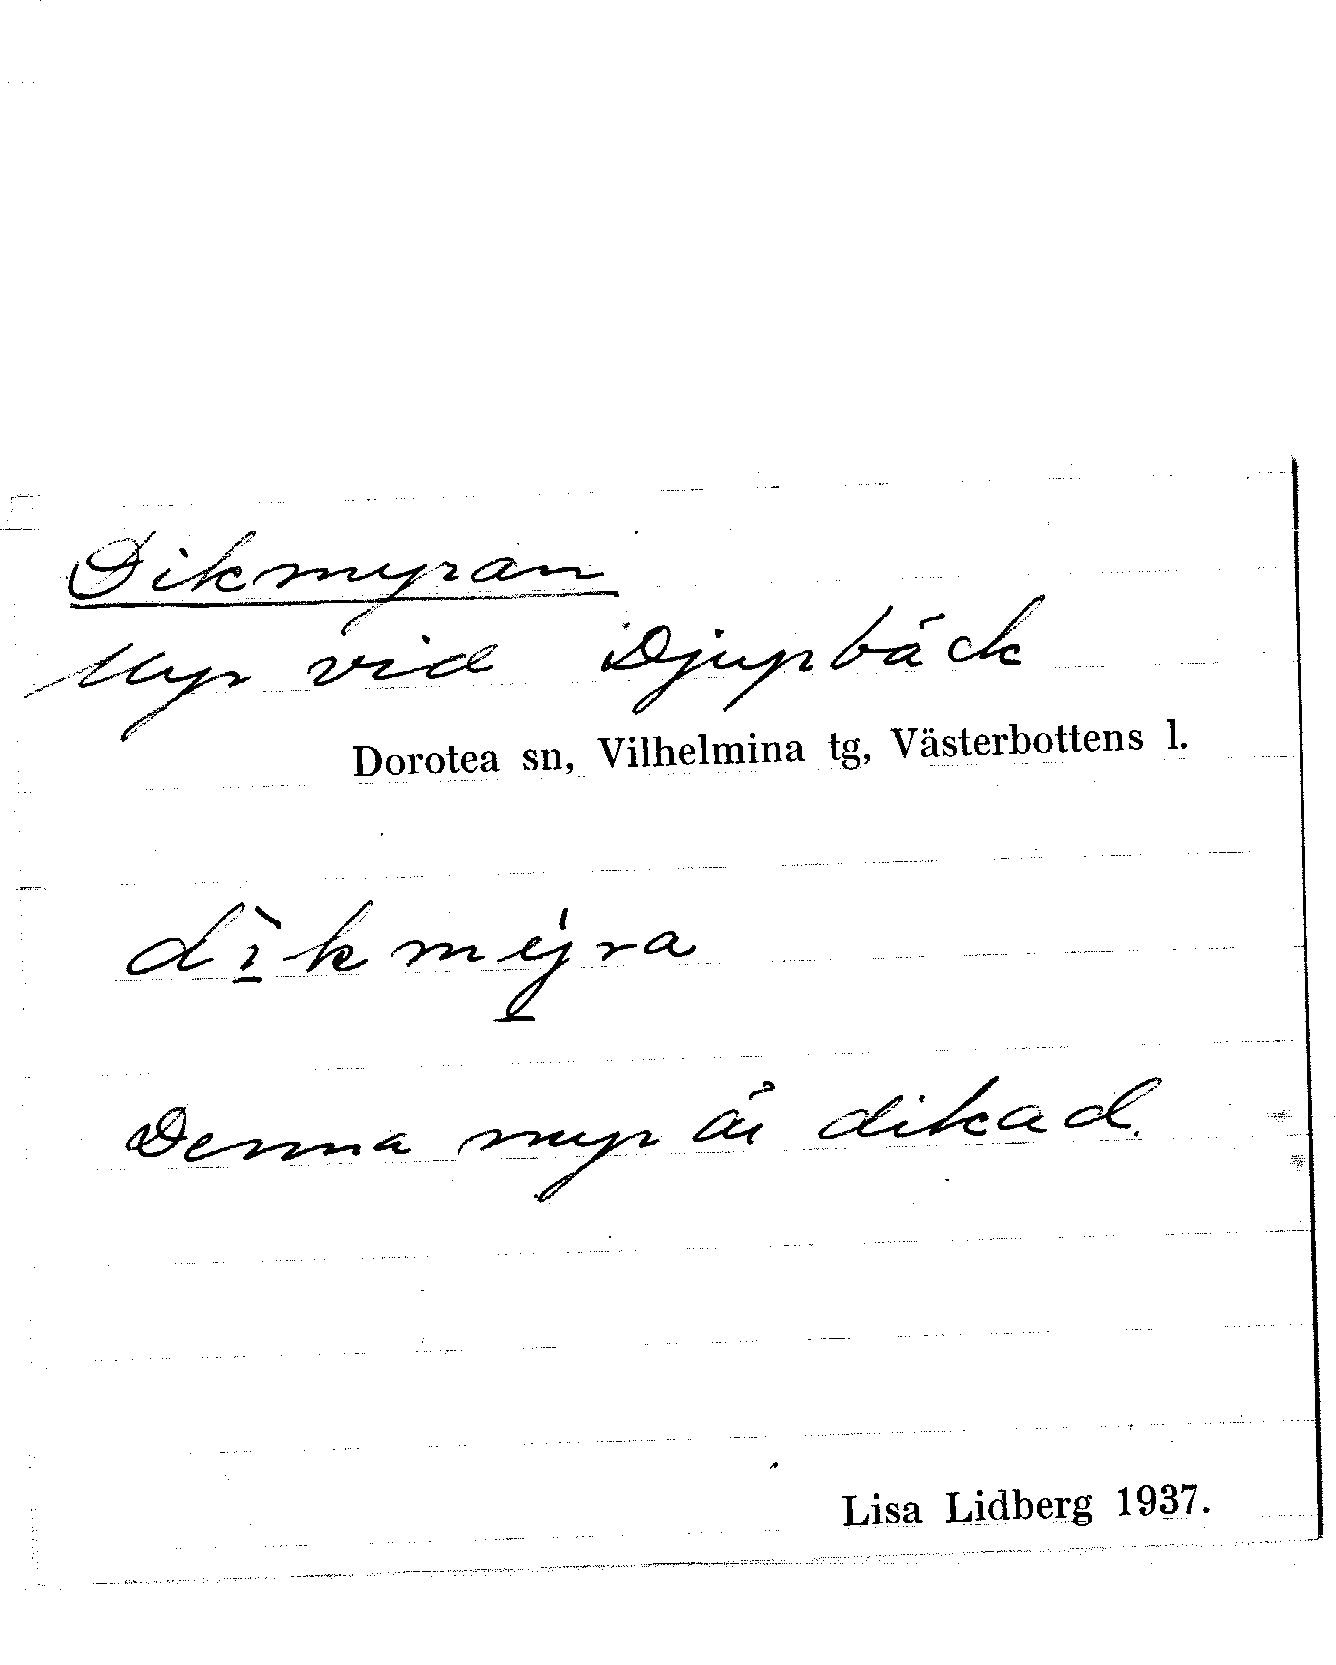 Dikmyran
Myr vid Djupbäck
Dorotea sn, Vilhelmina tg, Västerbottens l.
dì̱kmý̱ra
Denna myr är dikad.
Lisa Lidberg 1937.